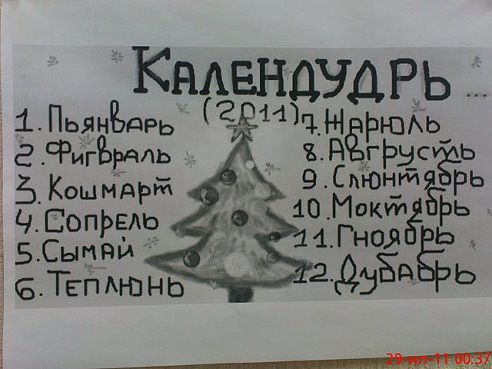 Календудрь ...
(2011)
1. Пьянварь
2. Фигвраль
3. Кошмарт
4. Сопрель
5. Сымай
6. Теплюнь
7. Жарюль
8. Авгрусть
9. Слюнтябрь
10. Моктябрь
11. Гноябрь
12. Дубабрь
00:37